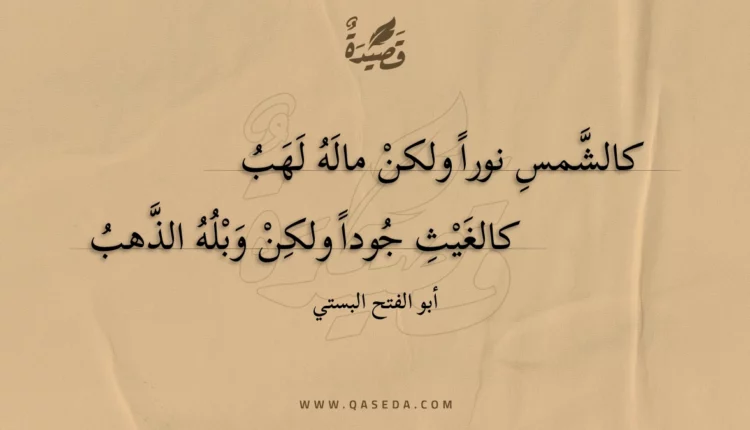 قَصِيدَةٌ
كالشَّمسِ نوراً ولكنْ مالَهُ لَهَبُ
كالغَيْثِ جُوداً ولكِنْ وَبْلُهُ الذَّهبُ
أبو الفتح البستي
WWW.QASEDA.COM